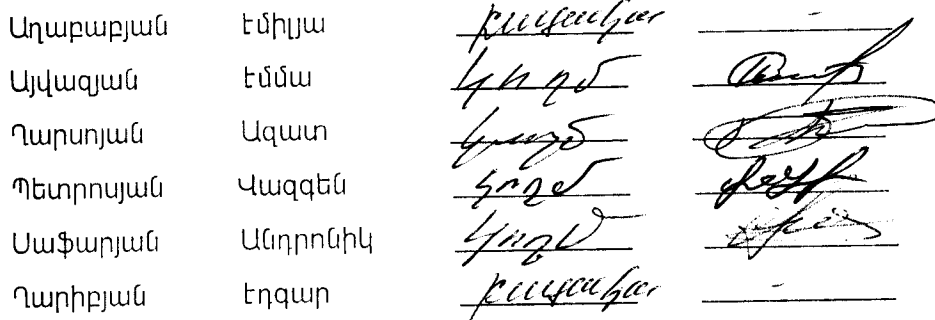 Աղաբաբյան Էմիլյա բացակա -
Այվազյան Էմմա կողմ
Ղարսոյան Ազատ կողմ
Պետրոսյան Վազգեն կողմ
Սաֆարյան Անդրոնիկ կողմ
Ղարիբյան Էդգար բացակա -